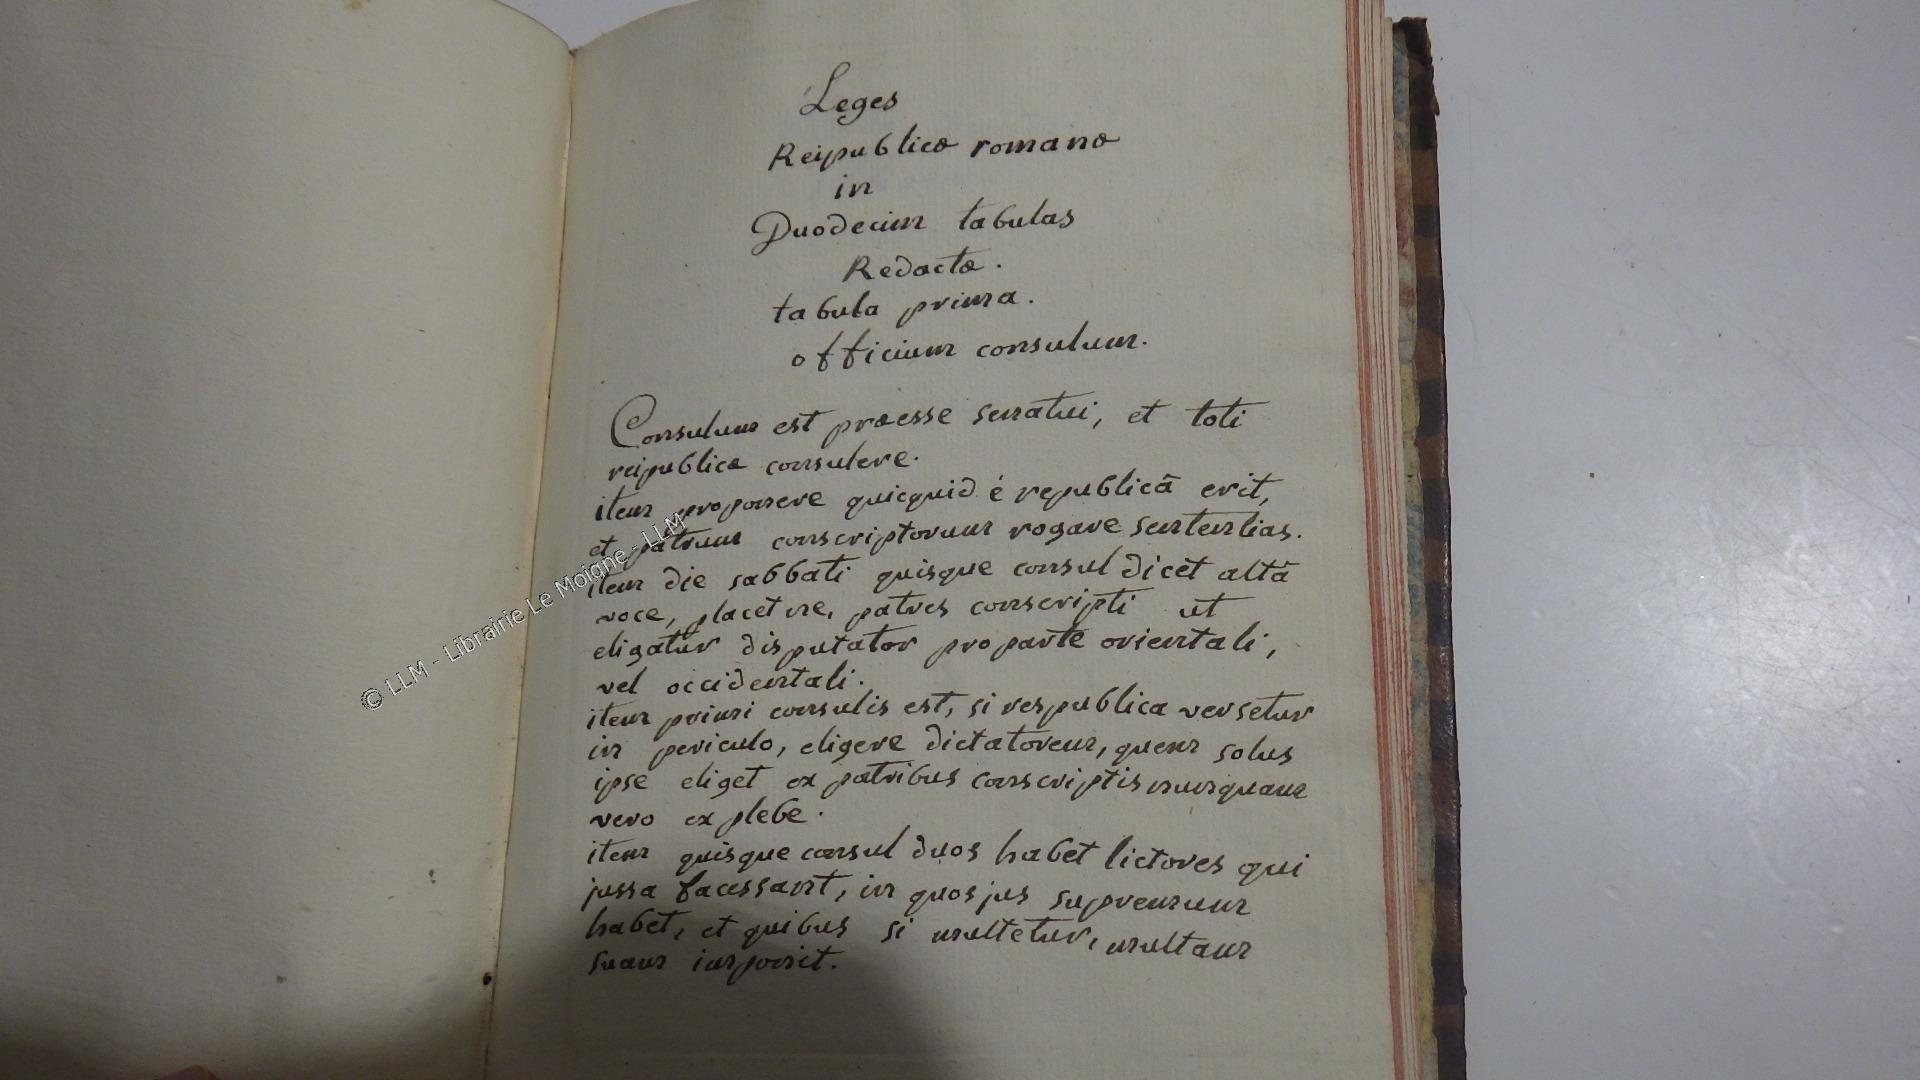 Leges
Reipublicæ romanæ
in
Duodecim tabulas
Redactæ.
tabula prima.
officium consulum.
Consulum est præesse senatui, et toti
reipublicæ consulere.
item proponere quicquid é republicâ erit,
et patrum conscriptorum rogare sententias.
item die sabbati quisque consul dicet altâ
voce, placet ne, patres conscripti ut
eligatur disputator pro parte orientali,
vel occidentali.
item primi consulis est, si respublica versetur
in periculo, eligere dictatorem, quem solus
ipse eliget ex patribus conscriptis nunquam
vero ex plebe.
item quisque consul duos habet lictores qui
jussa facessant, in quos jus supremum
habet, et quibus si multetur, multam
suam imponit.
© LLM - Librairie Le Moigne - LLM